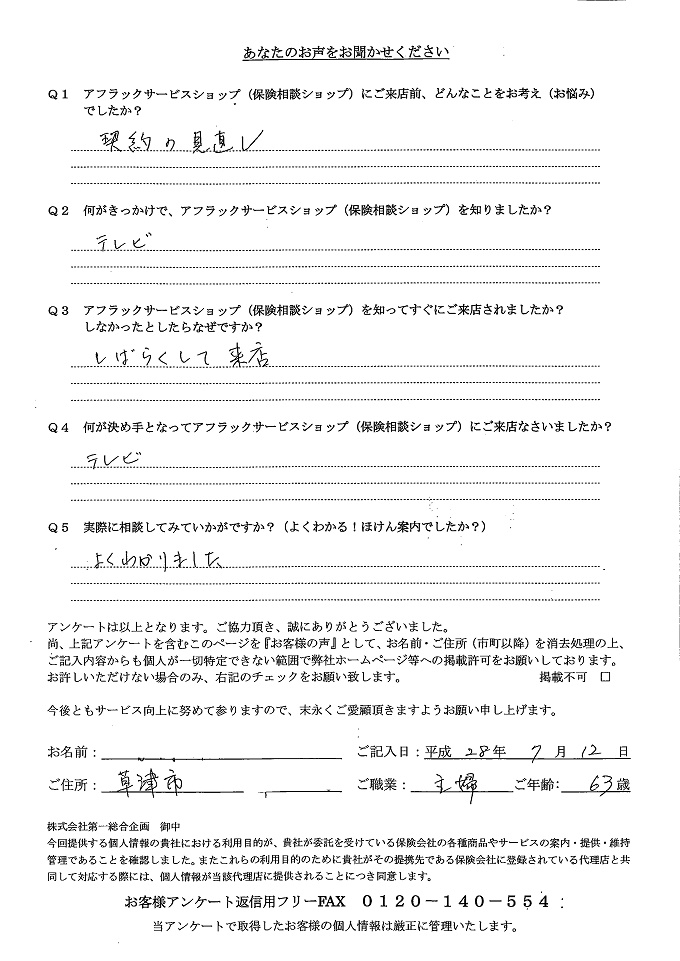 あなたのお声をお聞かせください
Q1 アフラックサービスショップ（保険相談ショップ）にご来店前、どんなことをお考え（お悩み）
でしたか？
契約の見直し
Q2 何がきっかけで、アフラックサービスショップ（保険相談ショップ）を知りましたか？
テレビ
Q3 アフラックサービスショップ（保険相談ショップ）を知ってすぐにご来店されましたか？
しなかったとしたらなぜですか？
しばらくして来店
Q4 何が決め手となってアフラックサービスショップ（保険相談ショップ）にご来店なさいましたか？
テレビ
Q5 実際に相談してみていかがですか？（よくわかる！ほけん案内でしたか？）
よくわかりました
アンケートは以上となります。ご協力頂き、誠にありがとうございました。
尚、上記アンケートを含むこのページを『お客様の声』として、お名前・ご住所（市町以降）を消去処理の上、
ご記入内容からも個人が一切特定できない範囲で弊社ホームページ等への掲載許可をお願いしております。
お許しいただけない場合のみ、右記のチェックをお願い致します。 掲載不可 □
今後ともサービス向上に努めて参りますので、末永くご愛顧頂きますようお願い申し上げます。
お名前： ご記入日：平成 28年 7月 12日
ご住所： 草津市 ご職業： 主婦 ご年齢： 63歳
株式会社第一総合企画 御中
今回提供する個人情報の貴社における利用目的が、貴社が委託を受けている保険会社の各種商品やサービスの案内・提供・維持
管理であることを確認しました。またこれらの利用目的のために貴社がその提携先である保険会社に登録されている代理店と共
同して対応する際には、個人情報が当該代理店に提供されることにつき同意します。
お客様アンケート返信用フリーFAX 0120-140-554
当アンケートで取得したお客様の個人情報は厳正に管理いたします。